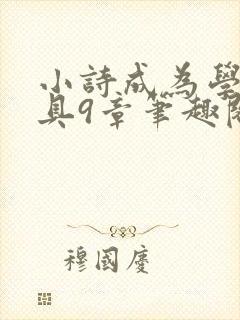 小詩成為學
具9章筆趣閣
穆國慶